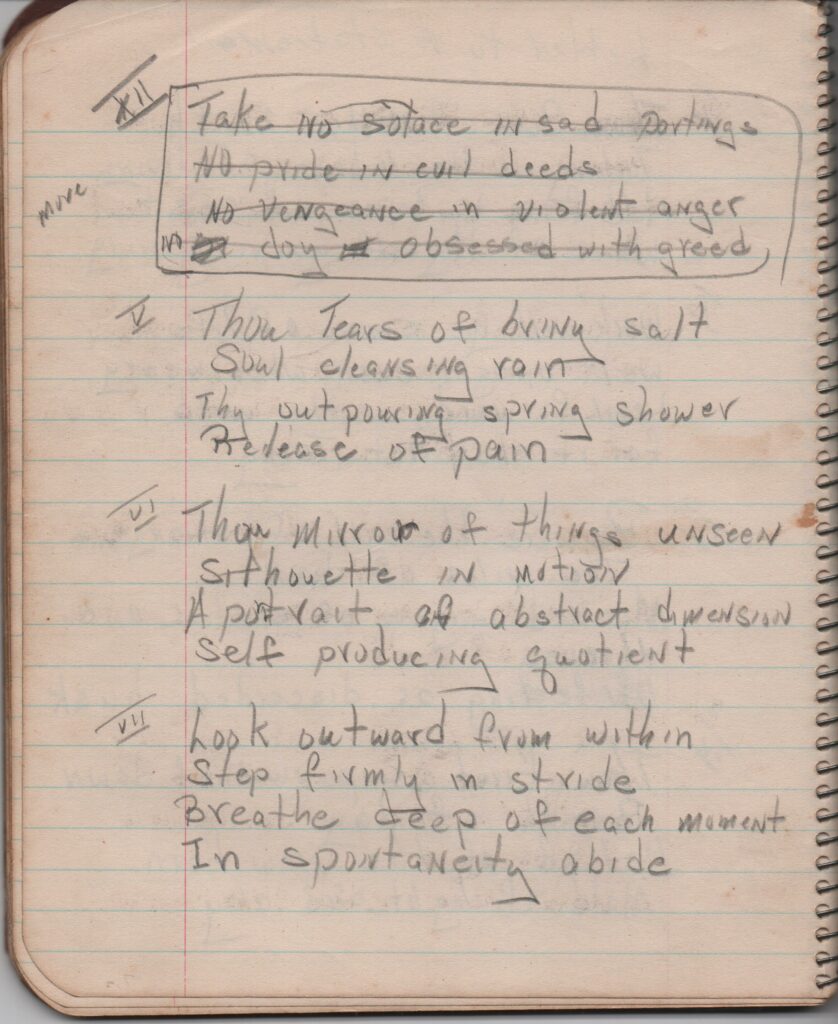 XII
Take no solace in sad partings
No pride in evil deeds
No vengeance in violent anger
move
No joy obsessed with greed
V Thou Tears of briny salt
Soul cleansing rain
Thy outpouring spring shower
Release of pain
VI Thou mirror of things unseen
Silhouette in motion
A portrait of abstract dimension
Self producing quotient
VII Look outward from within
Step firmly in stride
Breathe deep of each moment
In spontaneity abide